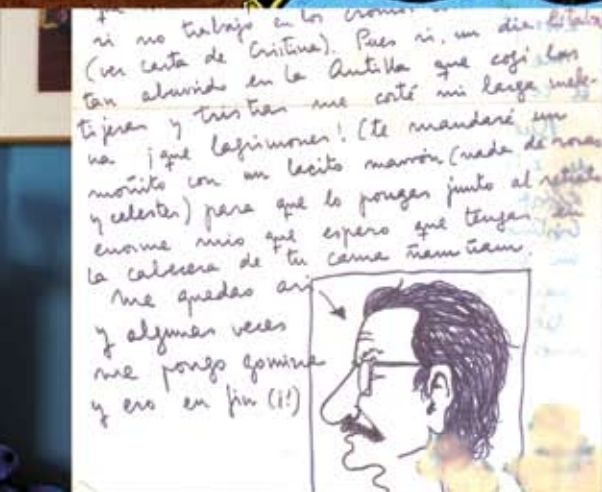 si no trabajo en los cromos
(ver carta de Cristina). Pues si, un dia estaba
tan aburrido en la Antilla que cogí las
tijeras y tris tras me corté mi larga mele-
na ¡qué lagrimones! (te mandaré un
moñito con un lacito marrón (nada de rosas
y celestes) para que lo pongas junto al retrato
enorme mio que espero que tengas en
la cabecera de tu cama ñam ñam.
me quedao asi
y algunas veces
me pongo gomina
y eso en fin (¡!)